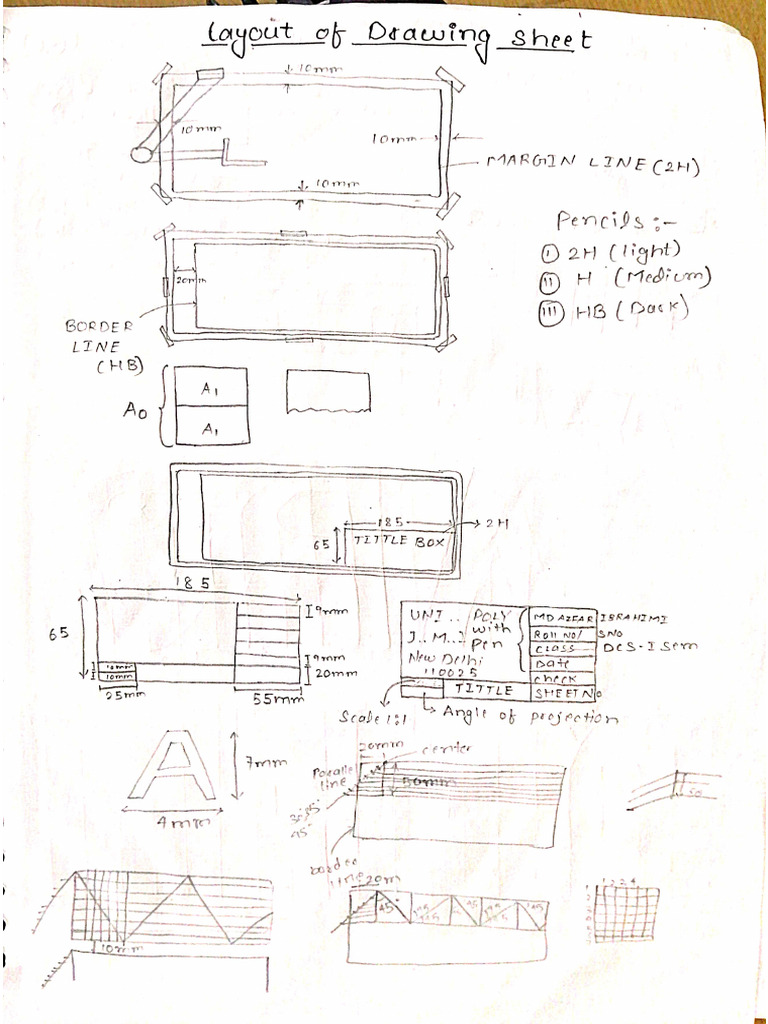 Layout of Drawing Sheet
10mm
10mm
10mm
MARGIN LINE (2H)
10mm
Pencils :-
(I) 2H (light)
(II) H (Medium)
(III) HB (Dark)
20mm
BORDER
LINE
(HB)
A0
A1
A1
185
2H
65
TITTLE BOX
185
65
9mm
9mm
20mm
10mm
10mm
25mm
55mm
UNI .. POLY
J.. M.. I
with
Pen
New Delhi
110025
MD AZFAR IBRAHIMI
Roll No/ SNO
CLASS DCS-I Sem
Date
check
TITTLE
SHEET NO
Scale 1:1
Angle of projection
7mm
4mm
20mm
center
Paralle
line
50mm
45°
border
line
20m
45°
10mm
50
1 2 3 4